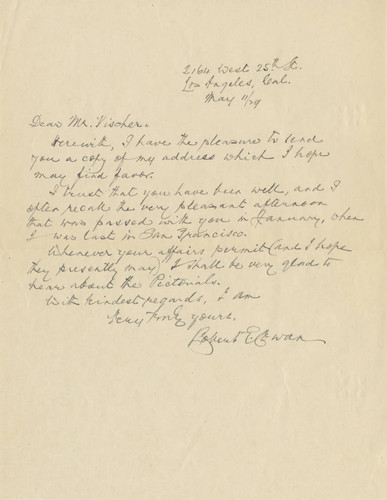 2164 West 25th St.
Los Angeles, Cal.
May 11/29
Dear Mr. Vischer.
Herewith, I have the pleasure to send
you a copy of my address which I hope
may find favor.
I trust that you have been well, and I
often recall the very pleasant afternoon
that was passed with you in January, when
I was last in San Francisco.
Whenever your affairs permit (and I hope
they presently may) I shall be very glad to
hear about the Pictorials.
With kindest regards, I am
Very truly yours.
Robert E. Cowan